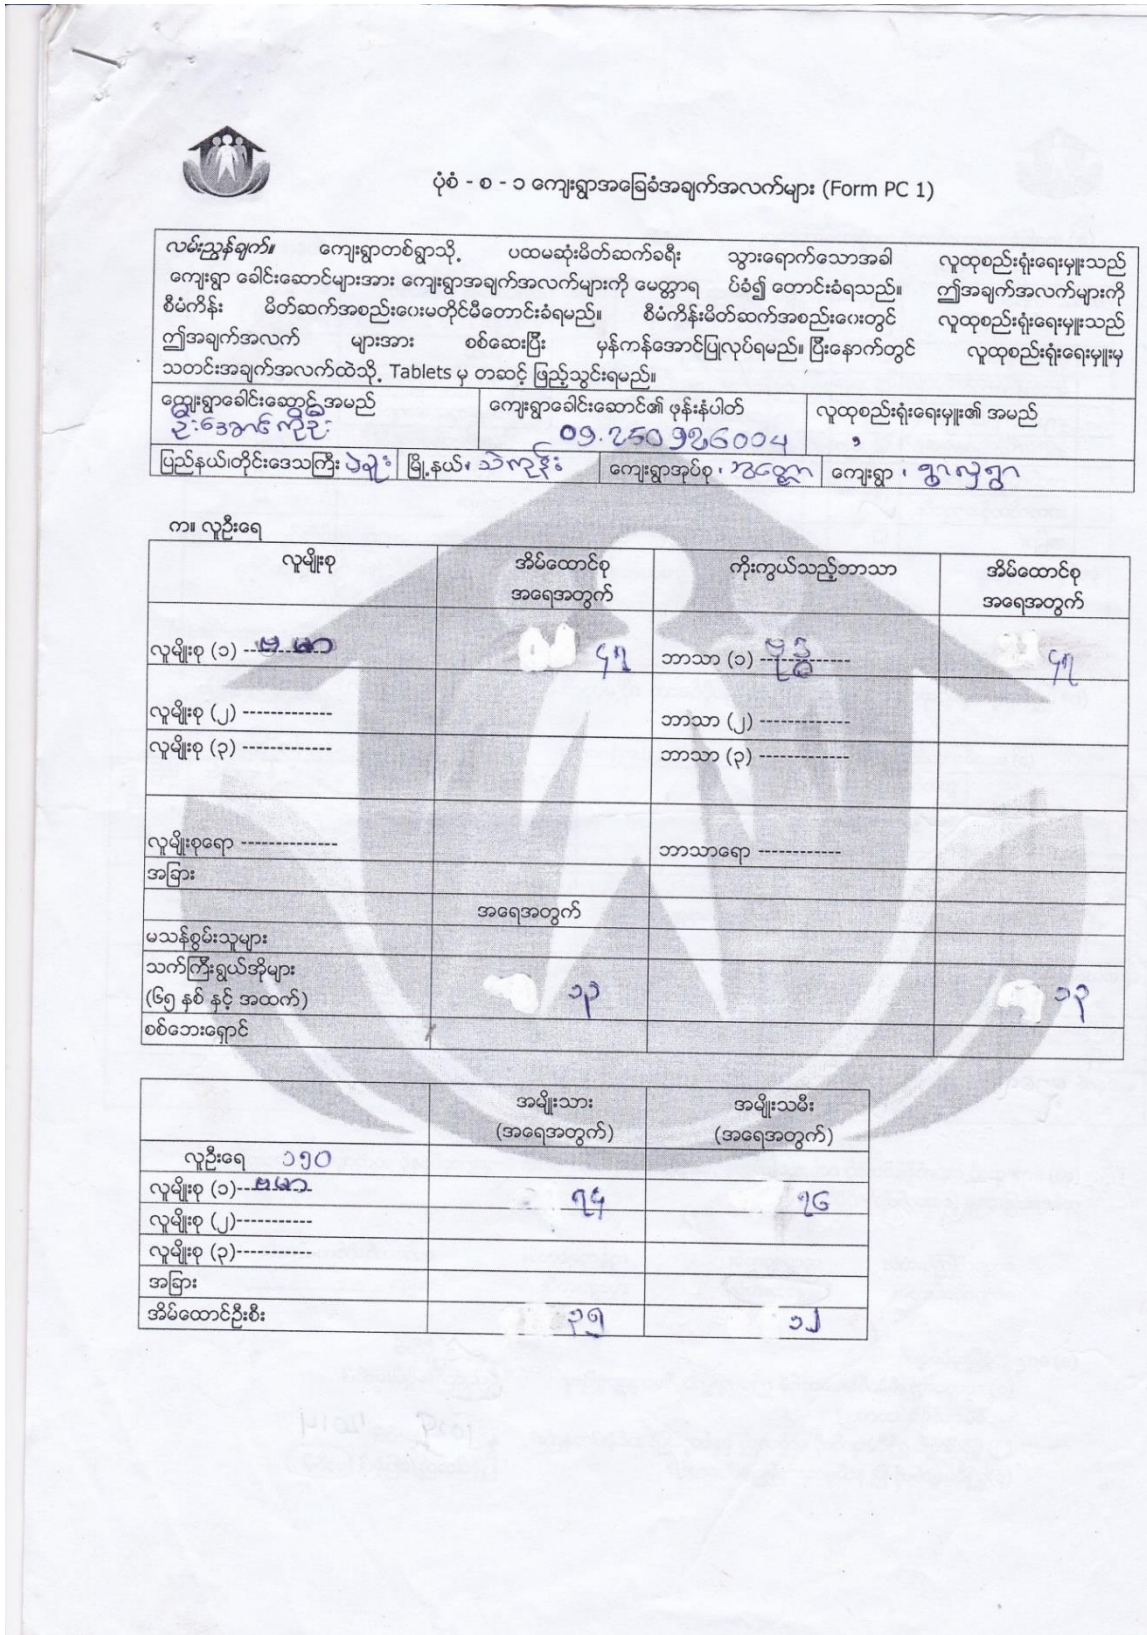 ပုံစံ - စ - ၁ ကျေးရွာအခြေခံအချက်အလက်များ (Form PC 1)
လမ်းညွှန်ချက်။ ကျေးရွာတစ်ရွာသို့ ပထမဆုံးမိတ်ဆက်ခရီး သွားရောက်သောအခါ လူထုစည်းရုံးရေးမှူးသည်
ကျေးရွာ ခေါင်းဆောင်များအား ကျေးရွာအချက်အလက်များကို မေတ္တာရ ပ်ခံ၍ တောင်းခံရသည်။ ဤအချက်အလက်များကို
စီမံကိန်း မိတ်ဆက်အစည်းဝေးမတိုင်မီတောင်းခံရမည်။ စီမံကိန်းမိတ်ဆက်အစည်းဝေးတွင် လူထုစည်းရုံးရေးမှူးသည်
ဤအချက်အလက် များအား စစ်ဆေးပြီး မှန်ကန်အောင်ပြုလုပ်ရမည်။ ပြီးနောက်တွင် လူထုစည်းရုံးရေးမှူးမှ
သတင်းအချက်အလက်ထဲသို့ Tablets မှ တဆင့် ဖြည့်သွင်းရမည်။
ကျေးရွာခေါင်းဆောင် အမည် ကျေးရွာခေါင်းဆောင်၏ ဖုန်းနံပါတ် လူထုစည်းရုံးရေးမှူး၏ အမည်
ဦးအောင်ကိုဦး 09.250926004
ပြည်နယ်၊တိုင်းဒေသကြီး ပဲခူး မြို့နယ် သဲကုန်း ကျေးရွာအုပ်စု ကျေးရွာ ရွာလှရွာ
က။ လူဦးရေ
လူမျိုးစု အိမ်ထောင်စု ကိုးကွယ်သည့်ဘာသာ အိမ်ထောင်စု
အရေအတွက် အရေအတွက်
လူမျိုးစု (၁) ဗမာ ၄၇ ဘာသာ (၁) ဗုဒ္ဓ ၄၇
လူမျိုးစု (၂) ------------- ဘာသာ (၂) -------------
လူမျိုးစု (၃) ------------- ဘာသာ (၃) -------------
လူမျိုးစုရော -------------- ဘာသာရော ------------
အခြား
အရေအတွက်
မသန်စွမ်းသူများ
သက်ကြီးရွယ်အိုများ
(၆၅ နှစ် နှင့် အထက်) ၁၃ ၁၃
စစ်ဘေးရှောင်
အမျိုးသား အမျိုးသမီး
(အရေအတွက်) (အရေအတွက်)
လူဦးရေ ၁၅၀
လူမျိုးစု (၁) ဗမာ ၇၄ ၇၆
လူမျိုးစု (၂)-----------
လူမျိုးစု (၃)-----------
အခြား
အိမ်ထောင်ဦးစီး ၃၅ ၁၂